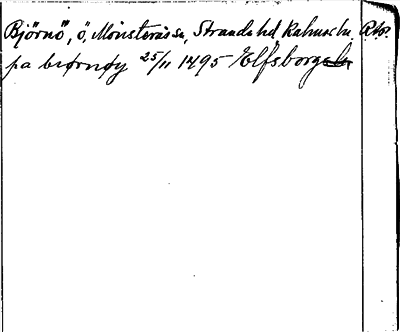 Björnö, ö, Mönsterås sn, Stranda hd, Kalmar ln.
pa biørnøy 25/11 1495 Elfsborg